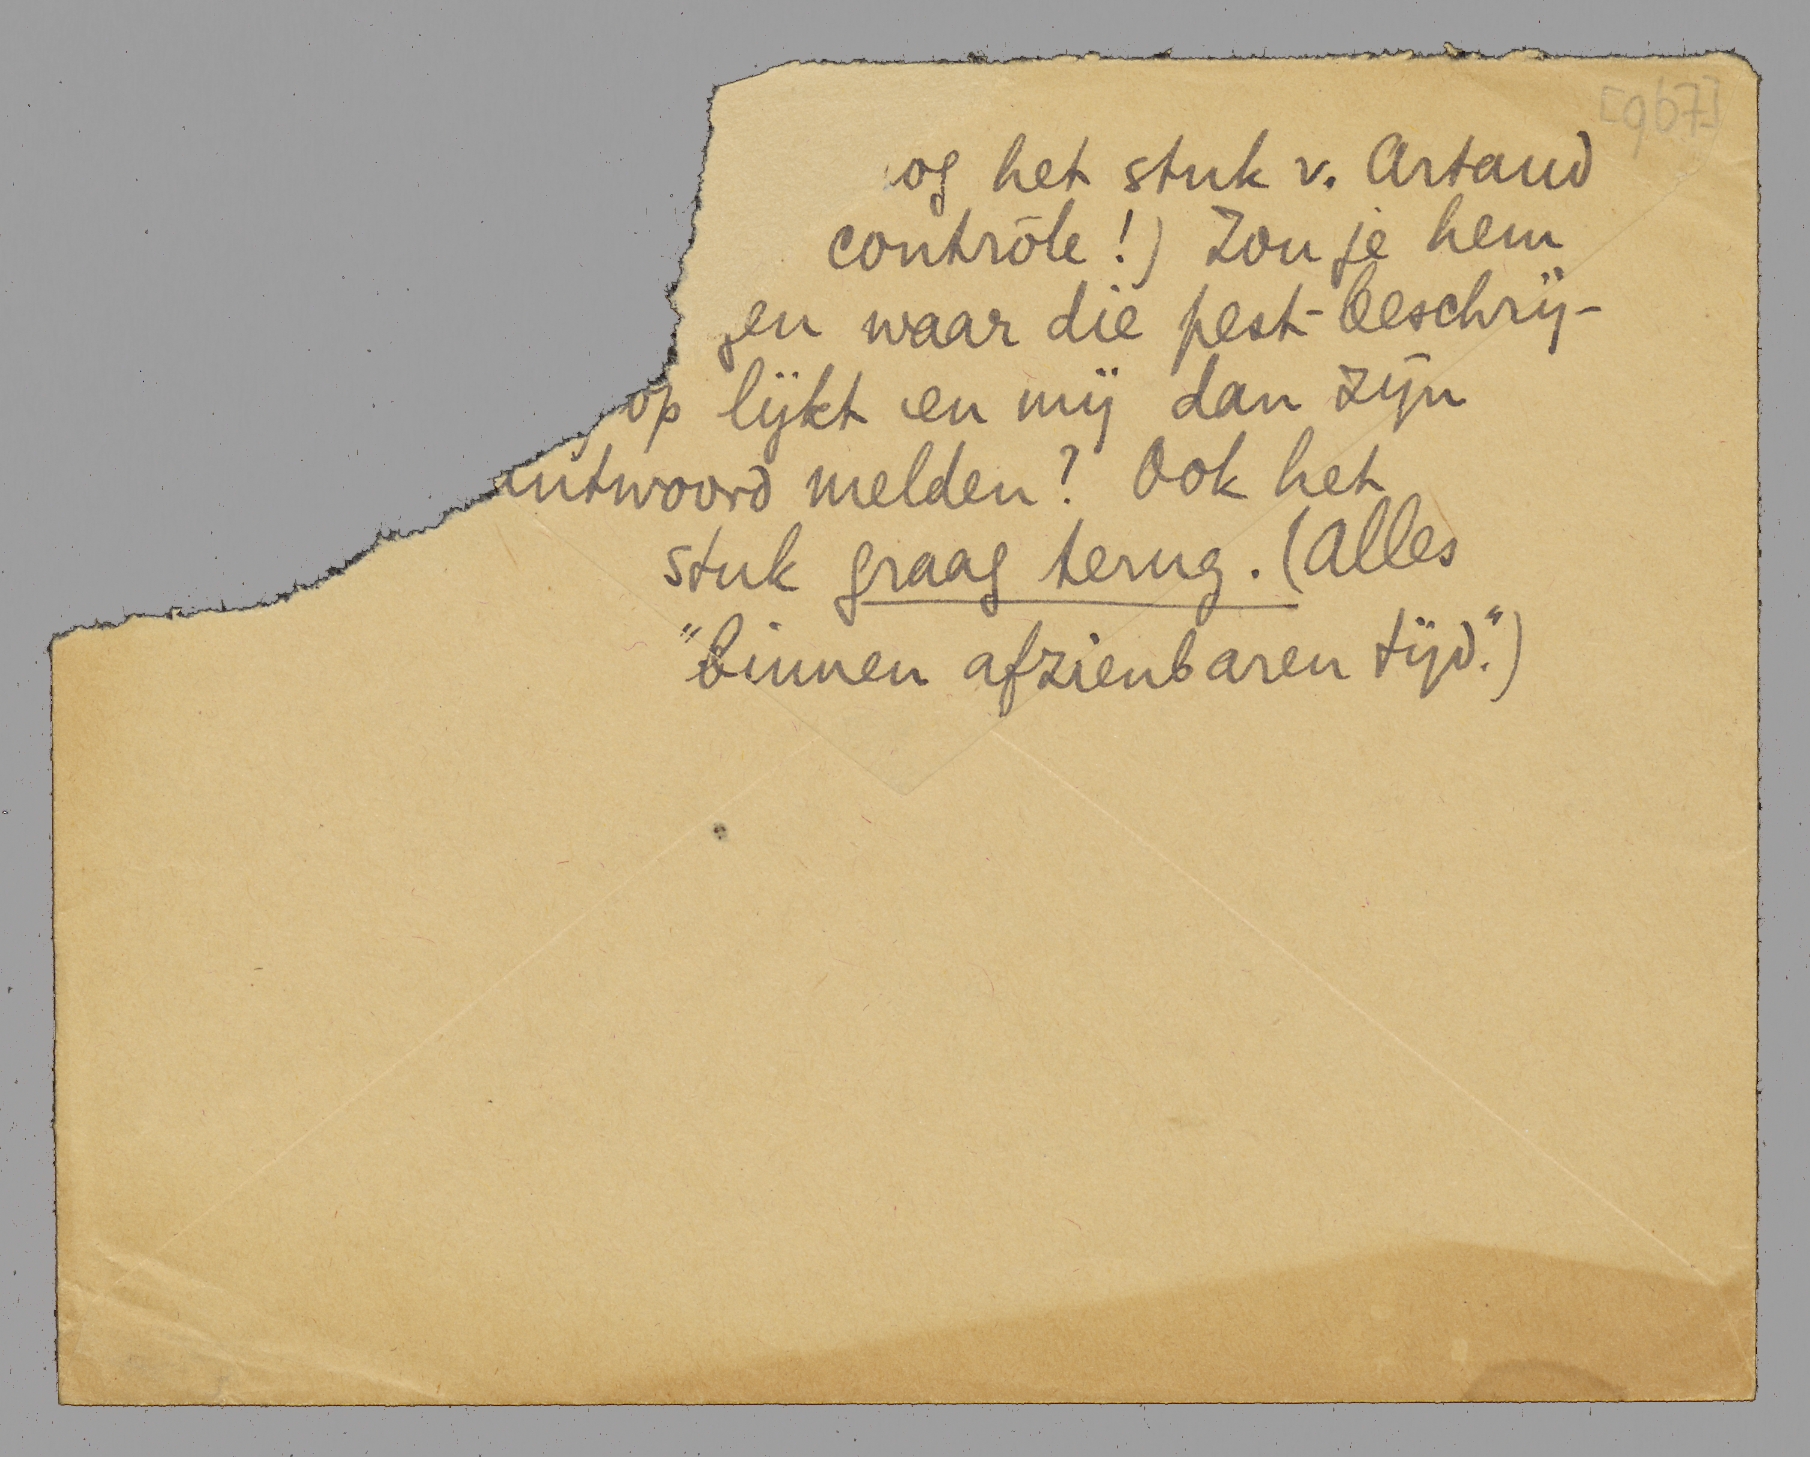 [967]
og het stuk v. Artaud
contrôle!) Zou je hem
gen waar die pest-beschrij-
op lijkt en mij dan zijn
antwoord melden? Ook het
stuk graag terug. (Alles
"binnen afzienbaren tijd.")